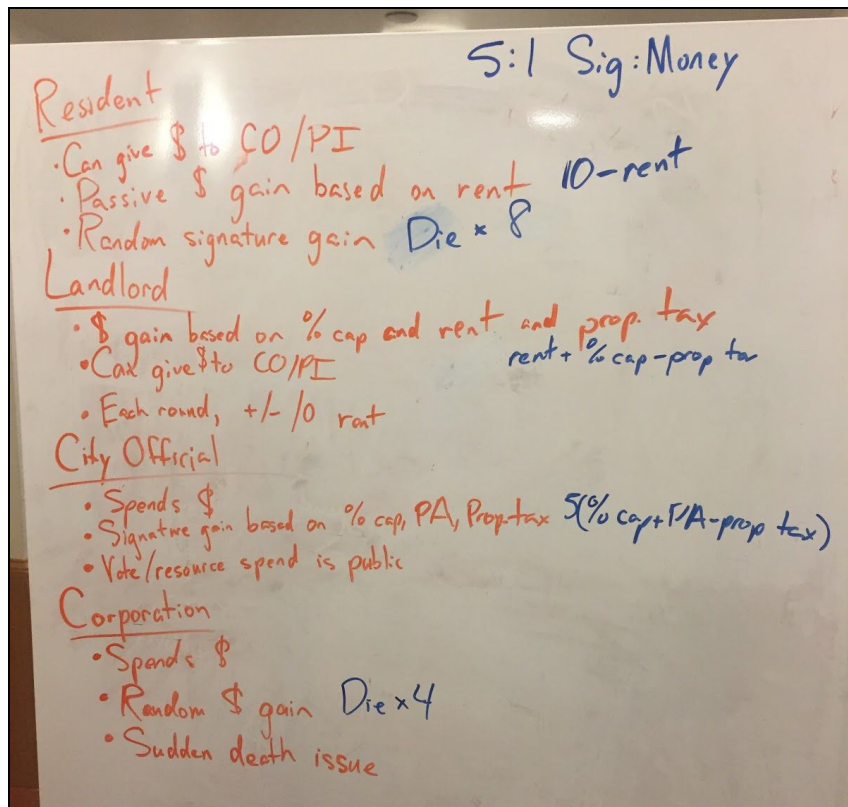 5:1 Sig:Money
Resident
• Can give $ to CO/PI
• Passive $ gain based on rent 10-rent
• Random signature gain Die × 8
Landlord
• $ gain based on % cap and rent and prop. tax
rent + % cap - prop tax
• Can give $ to CO/PI
• Each round, +/-/0 rent
City Official
• Spends $
• Signature gain based on % cap, PA, Prop tax 5(% cap + PA - prop tax)
• Vote/resource spend is public
Corporation
• Spends $
• Random $ gain Die × 4
• Sudden death issue